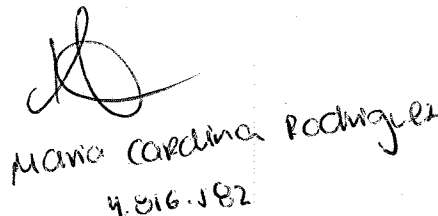 Maria Carolina Rodriguez
4.816.182